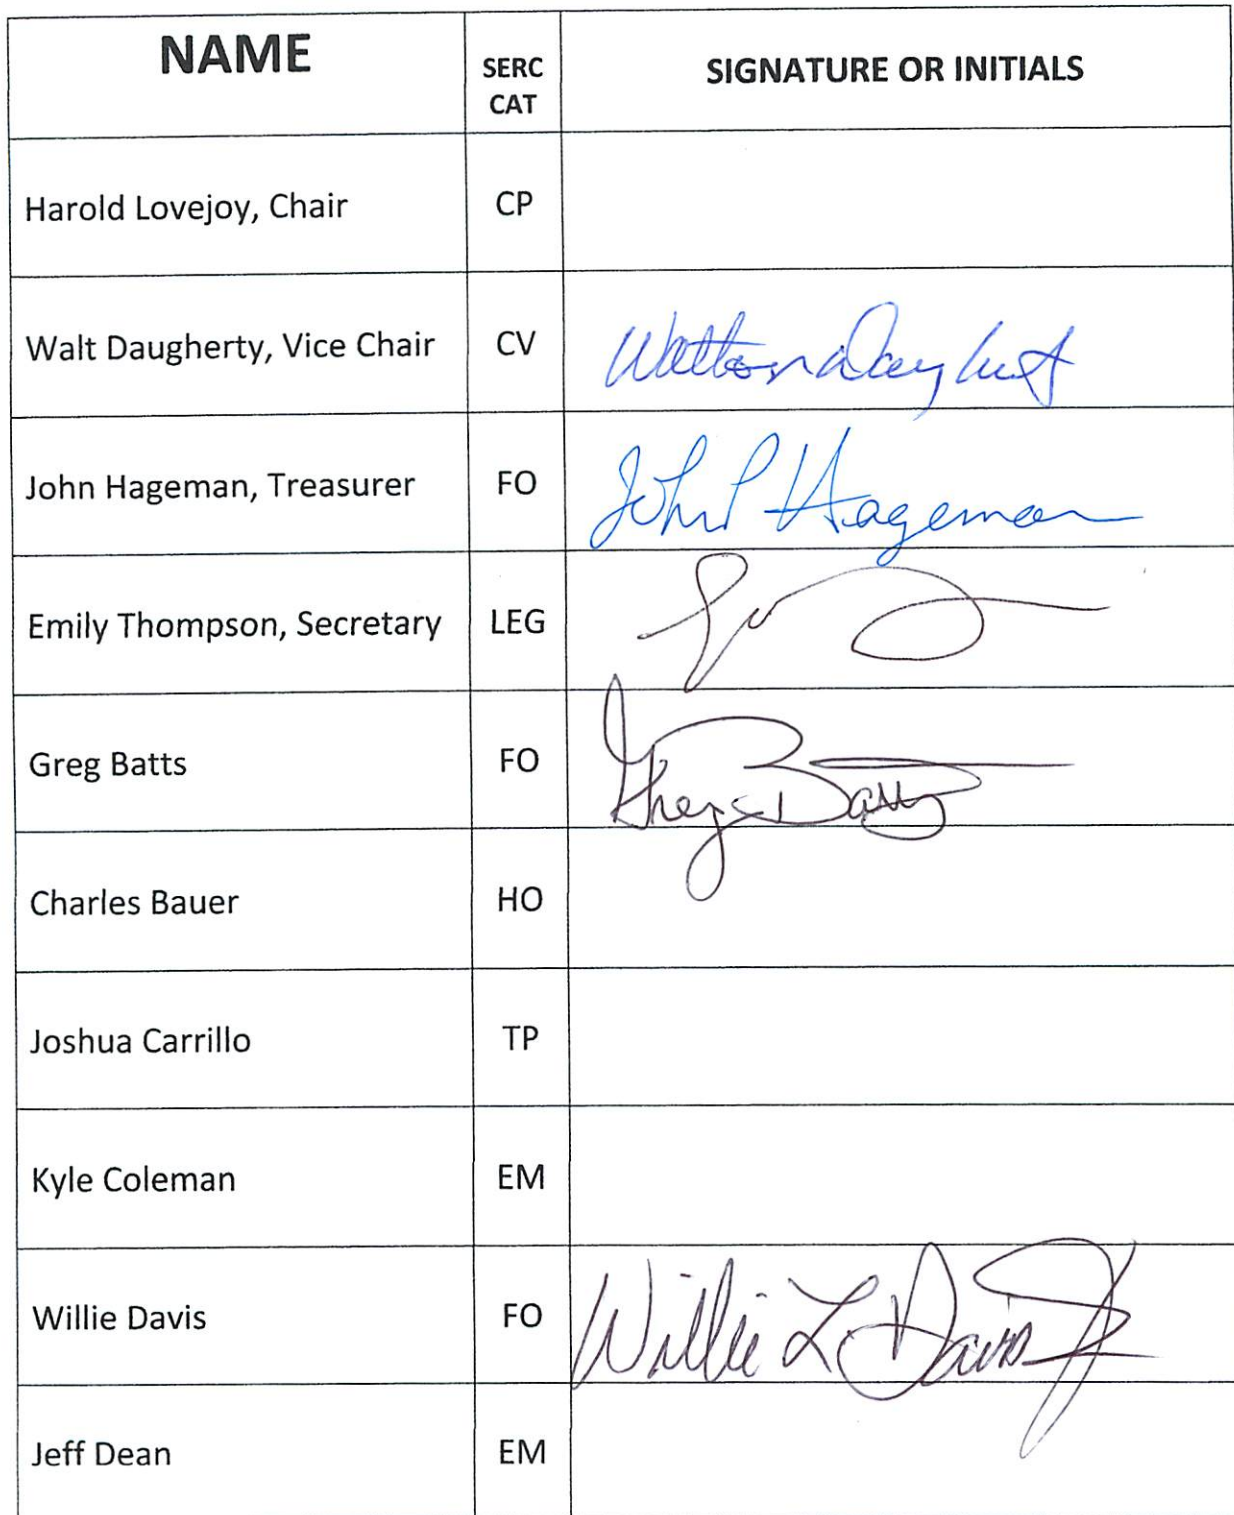 NAME SERC CAT SIGNATURE OR INITIALS
Harold Lovejoy, Chair CP
Walt Daugherty, Vice Chair CV Walton Daughert
John Hageman, Treasurer FO John P Hageman
Emily Thompson, Secretary LEG
Greg Batts FO Greg Batts
Charles Bauer HO
Joshua Carrillo TP
Kyle Coleman EM
Willie Davis FO Willie L Davis Jr
Jeff Dean EM